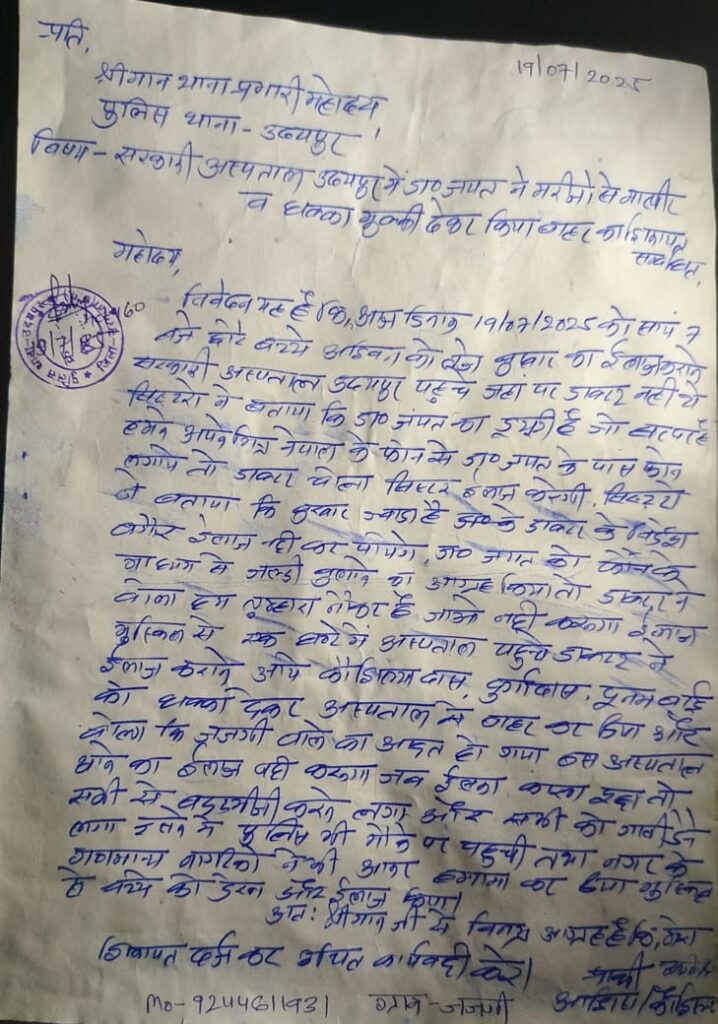 प्रति,
19/07/2025
श्रीमान थाना प्रभारी महोदय
पुलिस थाना - उदयपुर
विषय - सरकारी अस्पताल उदयपुर में डा० जयंत ने मरीजो से मारपीट
व धक्का मुक्की देकर किया बाहर का शिकायत
सम्बंधित
महोदय,
निवेदन यह है कि, आज दिनांक 19/07/2025 को सायं 7
बजे छोटे बच्चे को तेज बुखार का ईलाज कराने
सरकारी अस्पताल उदयपुर पहुंचे जहां पर डाक्टर नही थे
सिस्टरो ने बताया कि डा० जयंत का ड्यूटी है जो घर पर है
हमने अपने मित्र नेपाल के फोन से डा० जयंत के पास फोन
लगाये तो डाक्टर बोला सिस्टर ईलाज करेगी, सिस्टरो
ने बताया कि बुखार ज्यादा है डाक्टर के निर्देश
बगैर ईलाज नही कर पायेंगे, डा० जयंत को फोन के
माध्यम से जल्दी बुलाने का आग्रह किया तो डाक्टर ने
बोला हम तुम्हारा नौकर है जाओ नही करूगा ईलाज
मुश्किल से एक घंटे में अस्पताल पहुंचे डाक्टर ने
ईलाज कराने आये कौशिल्या दास, दुर्गादास, पूनम बाई
को धक्का देकर अस्पताल से बाहर कर दिया और
बोला कि जजगी वाले का आदत हो गया बस अस्पताल
आने का ईलाज नही करूगा जब
सभी से बदतमीजी करने लगा और सभी को गाली देने
लगा इतने में पुलिस भी मौके पर पहुंची तथा नगर के
गणमान्य नागरिको ने भी आकर
से बच्चे को देखा और ईलाज किया।
अतः श्रीमान जी से विनम्र आग्रह है कि,
शिकायत दर्ज कर उचित कार्यवाही करे।
प्रार्थी
Mo- 9244611931 ग्राम - जजगी